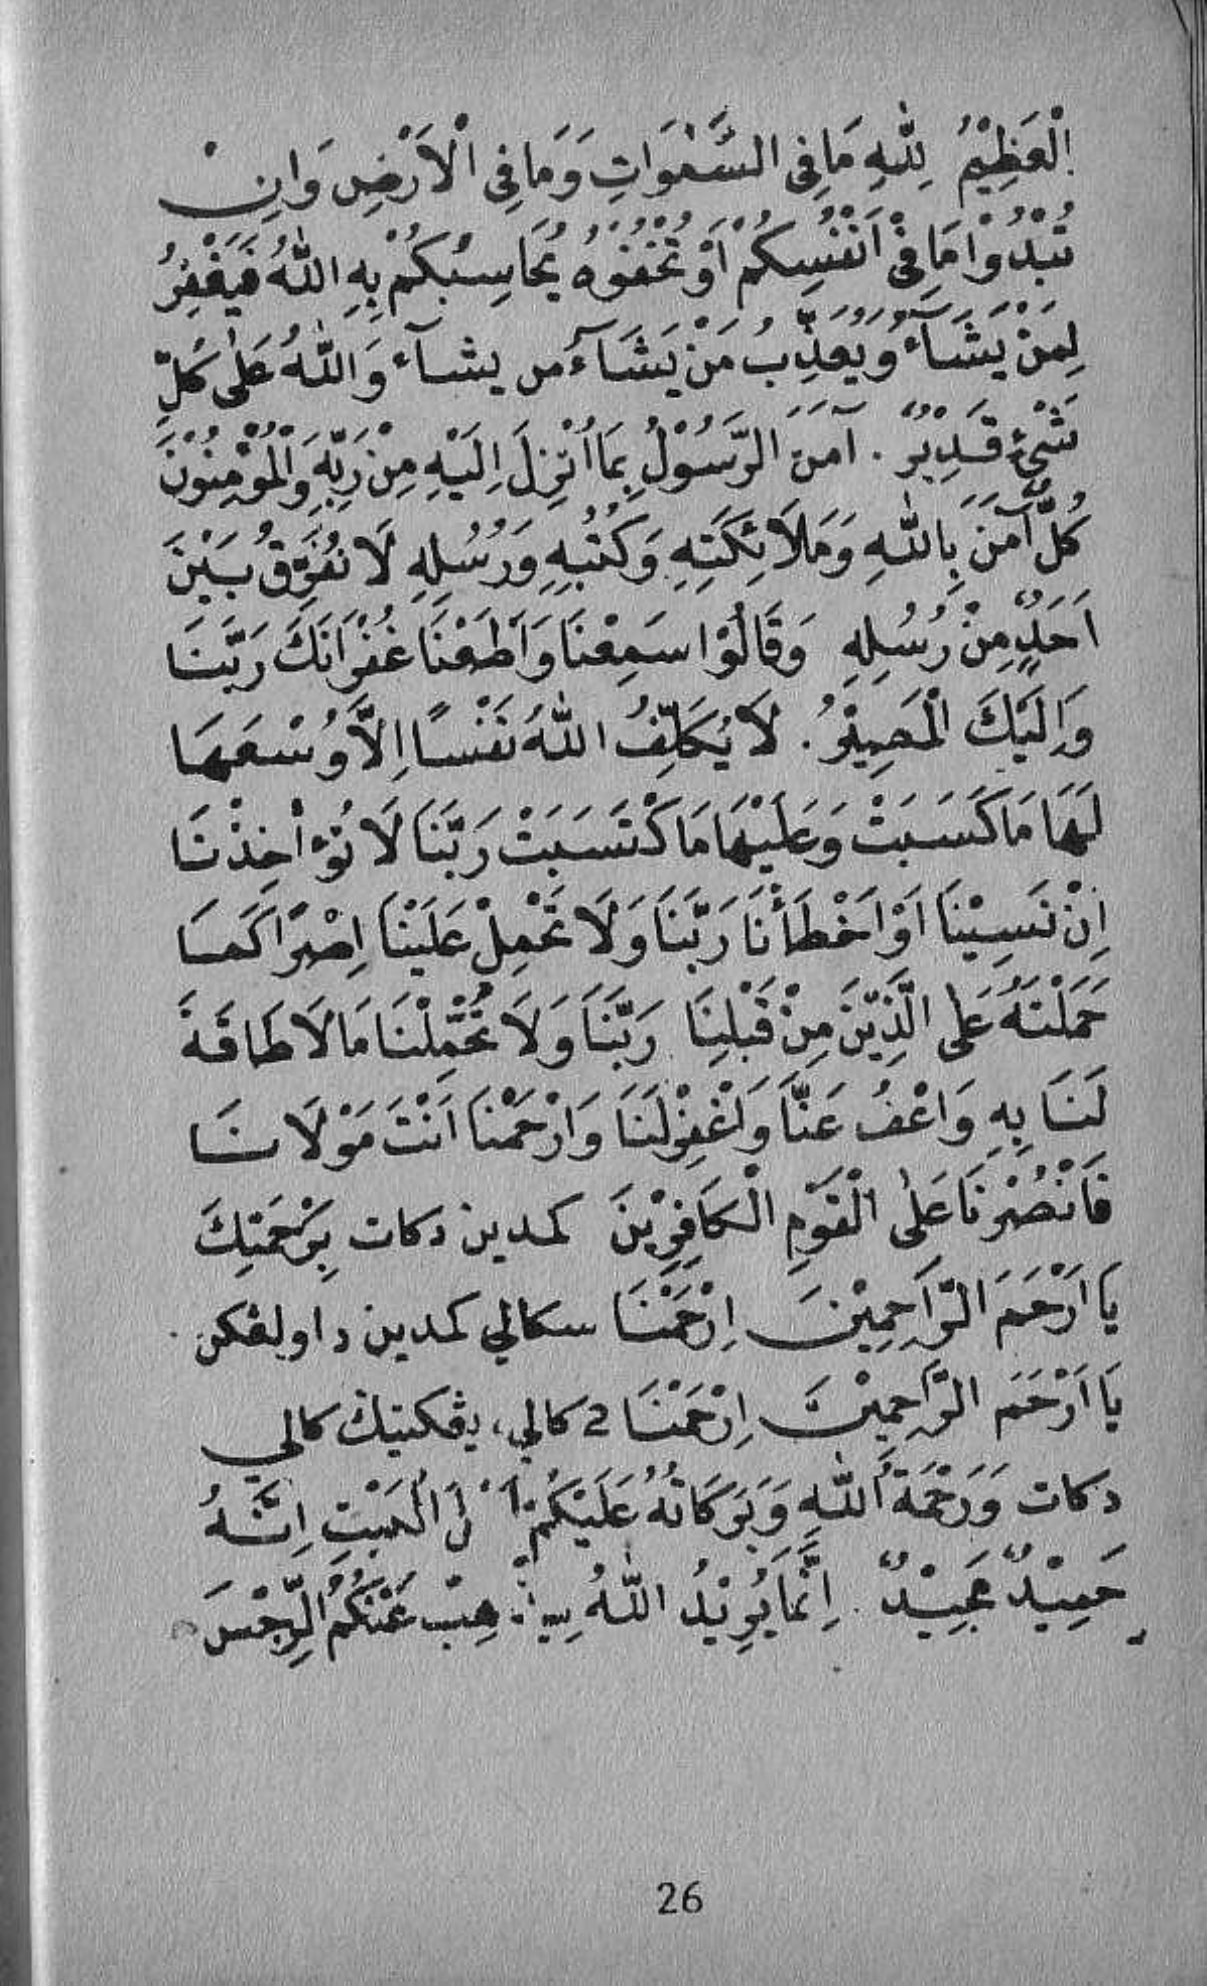 اِلْعَظِيْمُ لِلّٰهِ مَا فِى السَّمٰوَاتِ وَمَا فِى الْاَرْضِ وَاِنْ
تُبْدُوْا مَا فِىْ اَنْفُسِكُمْ اَوْ تُخْفُوْهُ يُحَاسِبْكُمْ بِهِ اللّٰهُ فَيَغْفِرُ
لِمَنْ يَشَآءُ وَيُعَذِّبُ مَنْ يَشَآءُ من يشآء وَاللّٰهُ عَلٰى كُلِّ
شَىْءٍ قَدِيْرٌ . آمَنَ الرَّسُوْلُ بِمَا اُنْزِلَ اِلَيْهِ مِنْ رَبِّهِ وَالْمُؤْمِنُوْنَ
كُلٌّ آمَنَ بِاللّٰهِ وَمَلَائِكَتِهِ وَكُتُبِهِ وَرُسُلِهِ لَا نُفَرِّقُ بَيْنَ
اَحَدٍ مِنْ رُسُلِهِ وَقَالُوْا سَمِعْنَا وَاَطَعْنَا غُفْرَانَكَ رَبَّنَا
وَاِلَيْكَ الْمَصِيْرُ . لَا يُكَلِّفُ اللّٰهُ نَفْسًا اِلَّا وُسْعَهَا
لَهَا مَا كَسَبَتْ وَعَلَيْهَا مَا كْتَسَبَتْ رَبَّنَا لَا تُؤَاخِذْنَا
اِنْ نَسِيْنَا اَوْ اَخْطَأْنَا رَبَّنَا وَلَا تَحْمِلْ عَلَيْنَا اِصْرًا كَمَا
حَمَلْتَهُ عَلَى الَّذِيْنَ مِنْ قَبْلِنَا رَبَّنَا وَلَا تُحَمِّلْنَا مَا لَا طَاقَةَ
لَنَا بِهِ وَاعْفُ عَنَّا وَاغْفِرْلَنَا وَارْحَمْنَا اَنْتَ مَوْلَانَا
فَانْصُرْنَا عَلَى الْقَوْمِ الْكَافِرِيْنَ كمدين دكات بِرَحْمَتِكَ
يَا اَرْحَمَ الرَّاحِمِيْنَ اِرْحَمْنَا سكالي كمدين داولڠكن .
يَا اَرْحَمَ الرَّاحِمِيْنَ اِرْحَمْنَا 2 كالي، يڠكتيݢ كالي
دكات وَرَحْمَةُ اللّٰهِ وَبَرَكَاتُهُ عَلَيْكُمْ الْبَيْتِ اِنَّهُ
حَمِيْدٌ مَجِيْدٌ . اِنَّمَا يُرِيْدُ اللّٰهُ عَنْكُمُ الرِّجْسَ
26